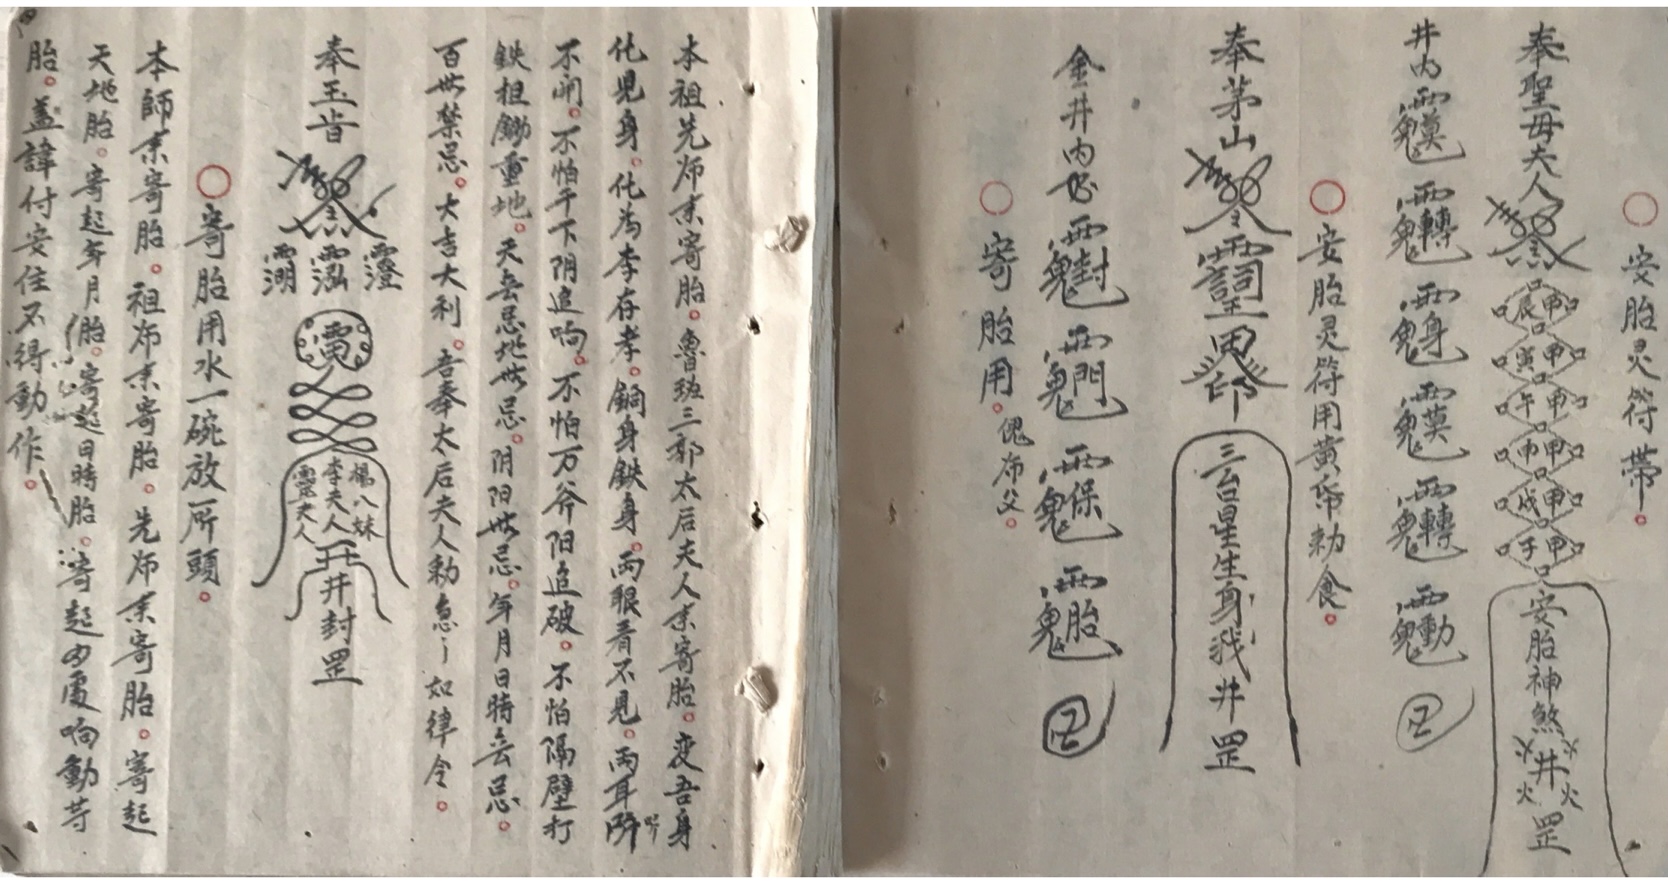 安胎灵符带。
奉聖母夫人 甲辰 甲寅 甲午 甲申 甲戌 甲子 安胎神煞井火火罡
井内
安胎灵符用黄帋勑食。
奉茅山 印 三台星生身我井罡
金井内
寄胎用。傀师父。
本祖先师来寄胎。魯班三郭太后夫人来寄胎。变吾身
化児身。化為李存孝。銅身鉄身。両眼看不見。両耳听
不闻。不怕千下阴追响。不怕万斧阳追破。不怕隔壁打
鉄担鋤重地。天無忌地無忌。阴阳無忌。年月日時無忌。
百無禁忌。大吉大利。吾奉太后夫人勑急〻如律令。
奉玉旨 楊八妹 李夫人 夫人 井封罡
寄胎用水一碗放所頭。
本師来寄胎。祖师来寄胎。先师来寄胎。寄起
天地胎。寄起年月胎。寄起日時胎。寄起内處响動苻
胎。盖諱付安住不得動作。